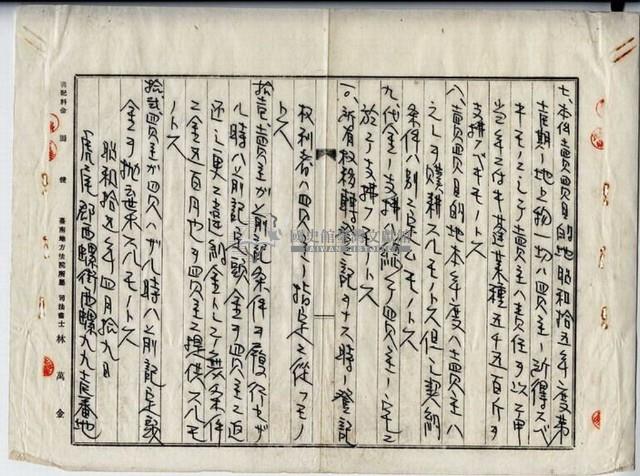 七、本件賣買目的地昭和拾五年度第
壱期ノ地上物一切ハ買主ノ所得スベ
キモノニシテ賣主ハ責任ヲ以テ甲
当年二付甘蔗葉種五千五百斤ヲ
支拂ベキモノトス
八、賣買目的地本年度ハ賣買主ハ
之レヲ贌耕スルモノトス但シ契約
条件ハ別ニ定ムモノトス
九、代金ノ支拂
於テ支拂フモノトス
一〇、所有权移轉登記ヲナス時ノ登記
权利者ハ買主ノ指定ニ從フモノ
トス
拾壱、賣主ガ前記条件ヲ履行セザ
ル時ハ前記定頭金ヲ買主ニ返
還シ更ニ違約金トシテ無条件
ニ金五百円也ヲ買主ニ提供スルモ
ノトス
拾弐買主ガ買ハザル時ハ前記定頭
金ヲ抛棄スルモノトス
昭和拾五年四月拾九日
虎尾郡西螺街西螺九九壱番地
書記料金 圓 錢 臺南地方法院所屬 司法書士 林萬金
國史館臺灣文獻館